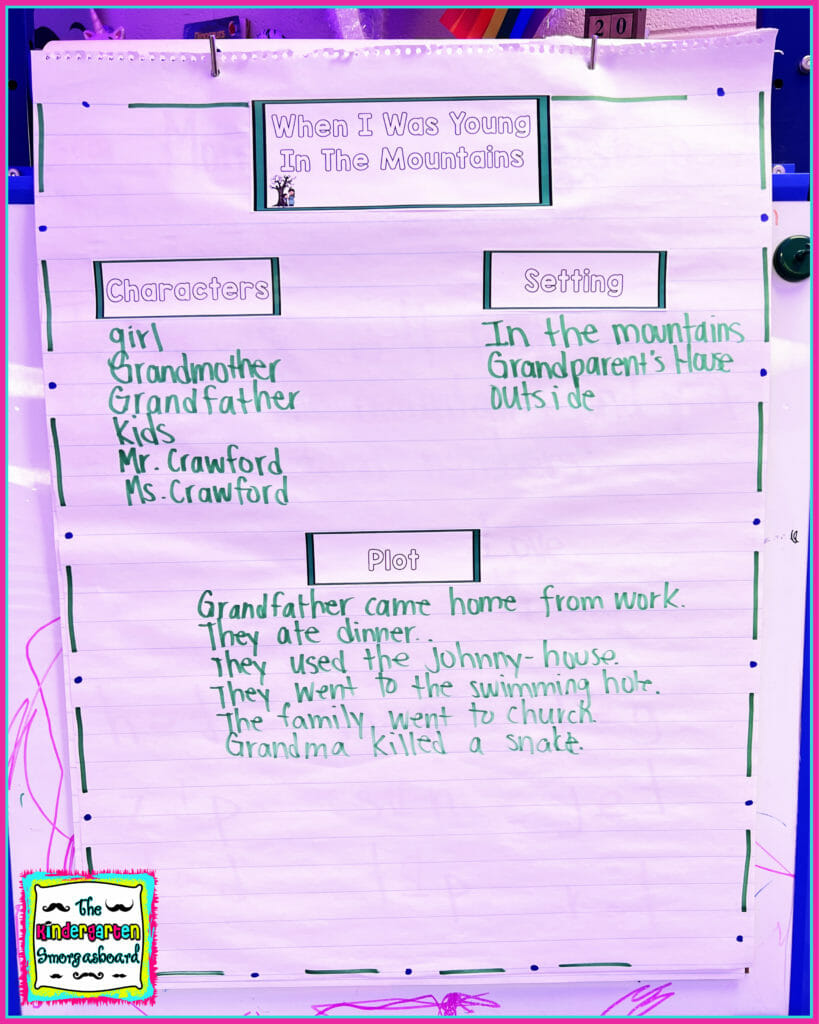 20
When I Was Young
In The Mountains
Characters
girl
Grandmother
Grandfather
Kids
Mr. Crawford
Ms. Crawford
Setting
In the mountains
Grandparent's House
outside
Plot
Grandfather came home from work.
They ate dinner..
They used the Johnny-house.
They went to the swimming hole.
The family went to church.
Grandma killed a snake.
The
Kindergarten
Smorgasboard